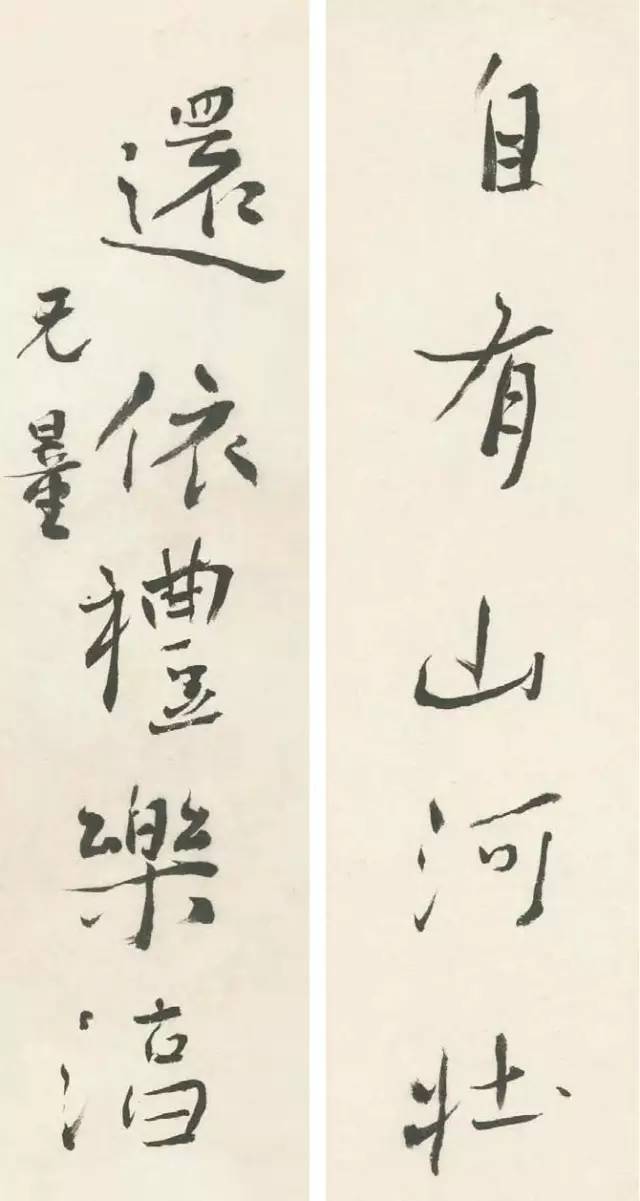 自有山河壯
還依禮樂淳
无量